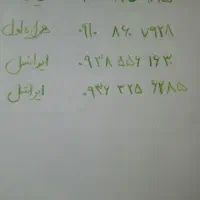 همراه اول ۰۹۱۰ ۸۶۰ ۷۹۲۸
ایرانسل ۰۹۳۸ ۵۵۶ ۱۶۳۰
ایرانسل ۰۹۳۶ ۲۲۵ ۶۲۸۵